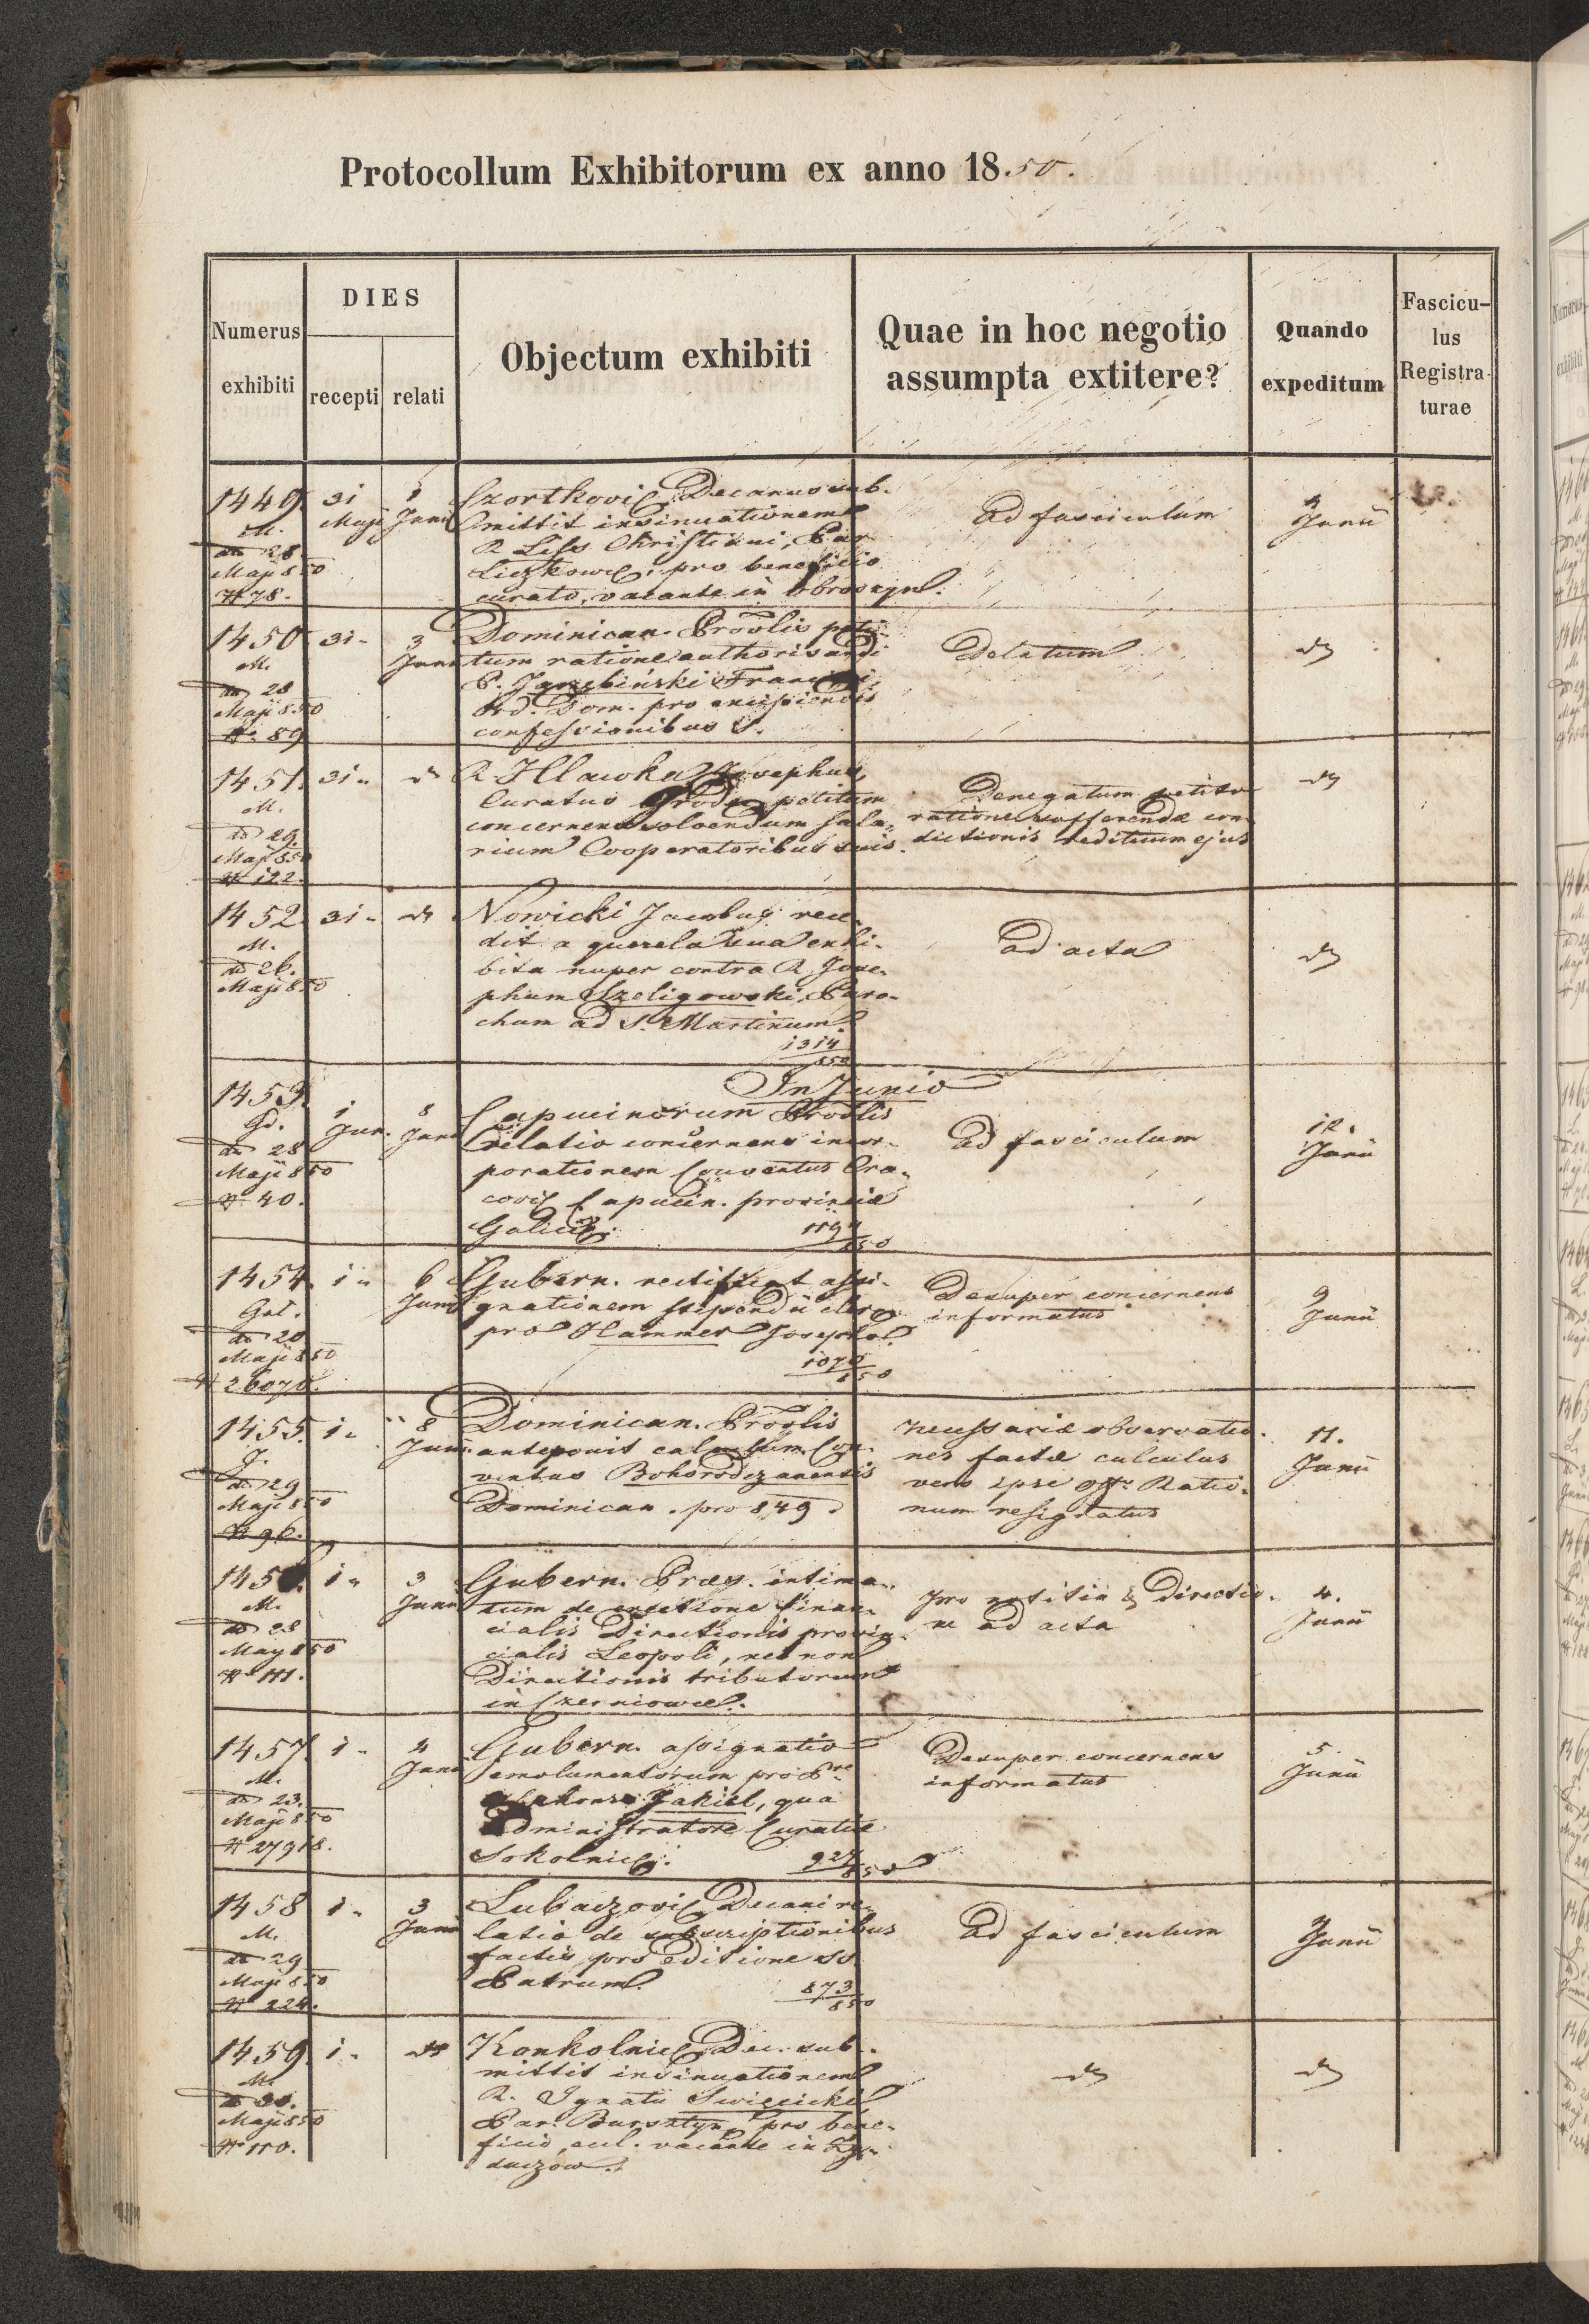 Protocollum Exhibitorum ex anno 1850.
Numerus exhibiti
DIES
recepti
relati
Objectum exhibiti
Quae in hoc negotio assumpta extitere?
Quando expeditum
Fascicu-
lus
Registra-
turae
1449 31 Maji 1 Junii
M.
dd 28
Maji 850
N 78.
Czortkovi Decanus sub-
mittit insinuationem
R. Liss Christiani, Par
pro beneficio
curato, vacante in Obroszyn.
Ad fasciculum
4 Junii
1450 31 - 3 Junii
M.
dd 28
Maji 850
N. 89
Dominican. Provlis peti-
tum ratione authorisandi
P. Jgrzebiński Francisci
Ord. Dom. pro excipiendis
confessionibus S.
Delatum
dt
1451. 31 - dt
M.
dd 29.
Maji 850
N 122.
R Hlawka Josephus,
Curatus petitum
concernens solvendum sala-
rium Cooperatoribus suis.
Denegatum petito
ratione
dictionis redituum ejus
dt
1452. 31 - dt
M.
dd 26.
Maji 850
Nowicki Jacobus rece-
dit a querela sua exhi-
bita nuper contra R. Jose-
phum Szeligowski, Paro-
chum ad S. Martinum.
1314
850
ad acta
dt
In Junio
1453. 1 Jun. 8 Junii
Gd.
dd 28
Maji 850
N 40.
Capucinorum Provlis
relatio concernens incor-
porationem Conventus Cra-
covi Capucin. provinciæ
Galici.
1194
850
Ad fasciculum
12. Junii
1454. 1 - 6 Junii
Gal.
dd 20
Maji 850
N 26070.
Gubern. rectificat assi-
gnationem stipendii
pro Hammer Josepho.
1070
850
Desuper concernens
informatus
9 Junii
1455. 1 - 8 Junii
J.
dd 29
Maji 850
N 96.
Dominican. Provlis
anteponit calculum Con-
ventus Bohorodczanensis
Dominican. pro 849.
necessariæ observatio-
nes factæ calculus
vero ipse Offo Ratio-
num resignatus
11. Junii
1456. 1 - 3 Junii
M.
dd 23
Maji 850
N 111.
Gubern. Præs. intima-
tum de erectione finan-
cialis Directionis provin-
cialis Leopoli, nec non
Directionis tributorum
in Czerniowce.
pro notitia & Directio-
ne ad acta
4. Junii
1457 1 - 4 Junii
M.
dd 23.
Maji 850
N 27918.
Gubern. assignatio
emolumentorum pro Pre
Jakiel, qua
administratore Curatiæ
Sokolnic.
927
850
Desuper concernens
informatus
5. Junii
1458 1 - 3 Junii
M.
dd 29
Maji 850
N 224.
Lubaczovi Decani re-
latio de subscriptionibus
factis pro editione SS.
Patrum.
873
850
Ad fasciculum
4 Junii
1459. 1 - dt
M.
dd 30.
Maji 850
N 110.
Konkolnic Dec. sub-
mittit insinuationem
R. Ignatii Swięcicki
Par. Bursztyn, pro bene-
ficio, eccl. vacante in Ży-
daczow.
dt
dt